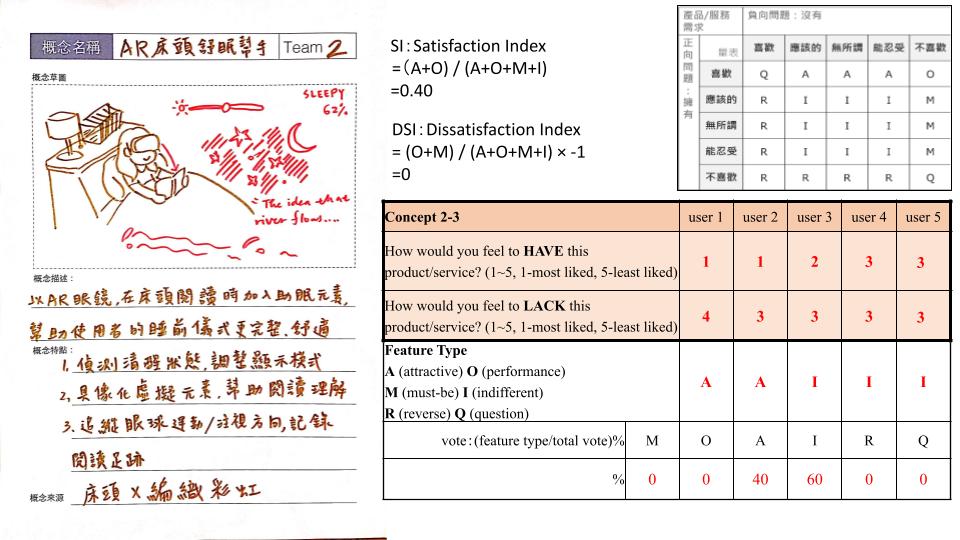 概念名稱 AR床頭舒眠幫手 Team 2
概念草圖
SLEEPY
62%
"The idea that
river flows....
概念描述:
以AR眼鏡,在床頭閱讀時加入助眠元素,
幫助使用者的睡前儀式更完整、舒適
概念特點:
1. 偵測清醒狀態,調整顯示模式
2. 具像化虛擬元素,幫助閱讀理解
3. 追縱眼球運動/注視方向,記錄
閱讀足跡
概念來源 床頭 × 編織彩虹
SI:Satisfaction Index
=(A+O) / (A+O+M+I)
=0.40
DSI:Dissatisfaction Index
= (O+M) / (A+O+M+I) × -1
=0
產品/服務需求 負向問題:沒有
正向問題:擁有
量表 喜歡 應該的 無所謂 能忍受 不喜歡
喜歡 Q A A A O
應該的 R I I I M
無所謂 R I I I M
能忍受 R I I I M
不喜歡 R R R R Q
Concept 2-3 user 1 user 2 user 3 user 4 user 5
How would you feel to HAVE this
product/service? (1~5, 1-most liked, 5-least liked) 1 1 2 3 3
How would you feel to LACK this
product/service? (1~5, 1-most liked, 5-least liked) 4 3 3 3 3
Feature Type
A (attractive) O (performance)
M (must-be) I (indifferent)
R (reverse) Q (question)
A A I I I
vote:(feature type/total vote)% M O A I R Q
% 0 0 40 60 0 0